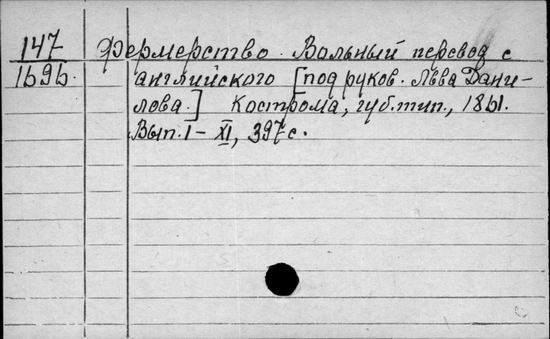 147 Фермерство. Вольный перевод с
1696. английского [под руков. Льва Дани-
лова.] Кострома, губ. тип., 1861.
Вып. I – XI, 397 с.